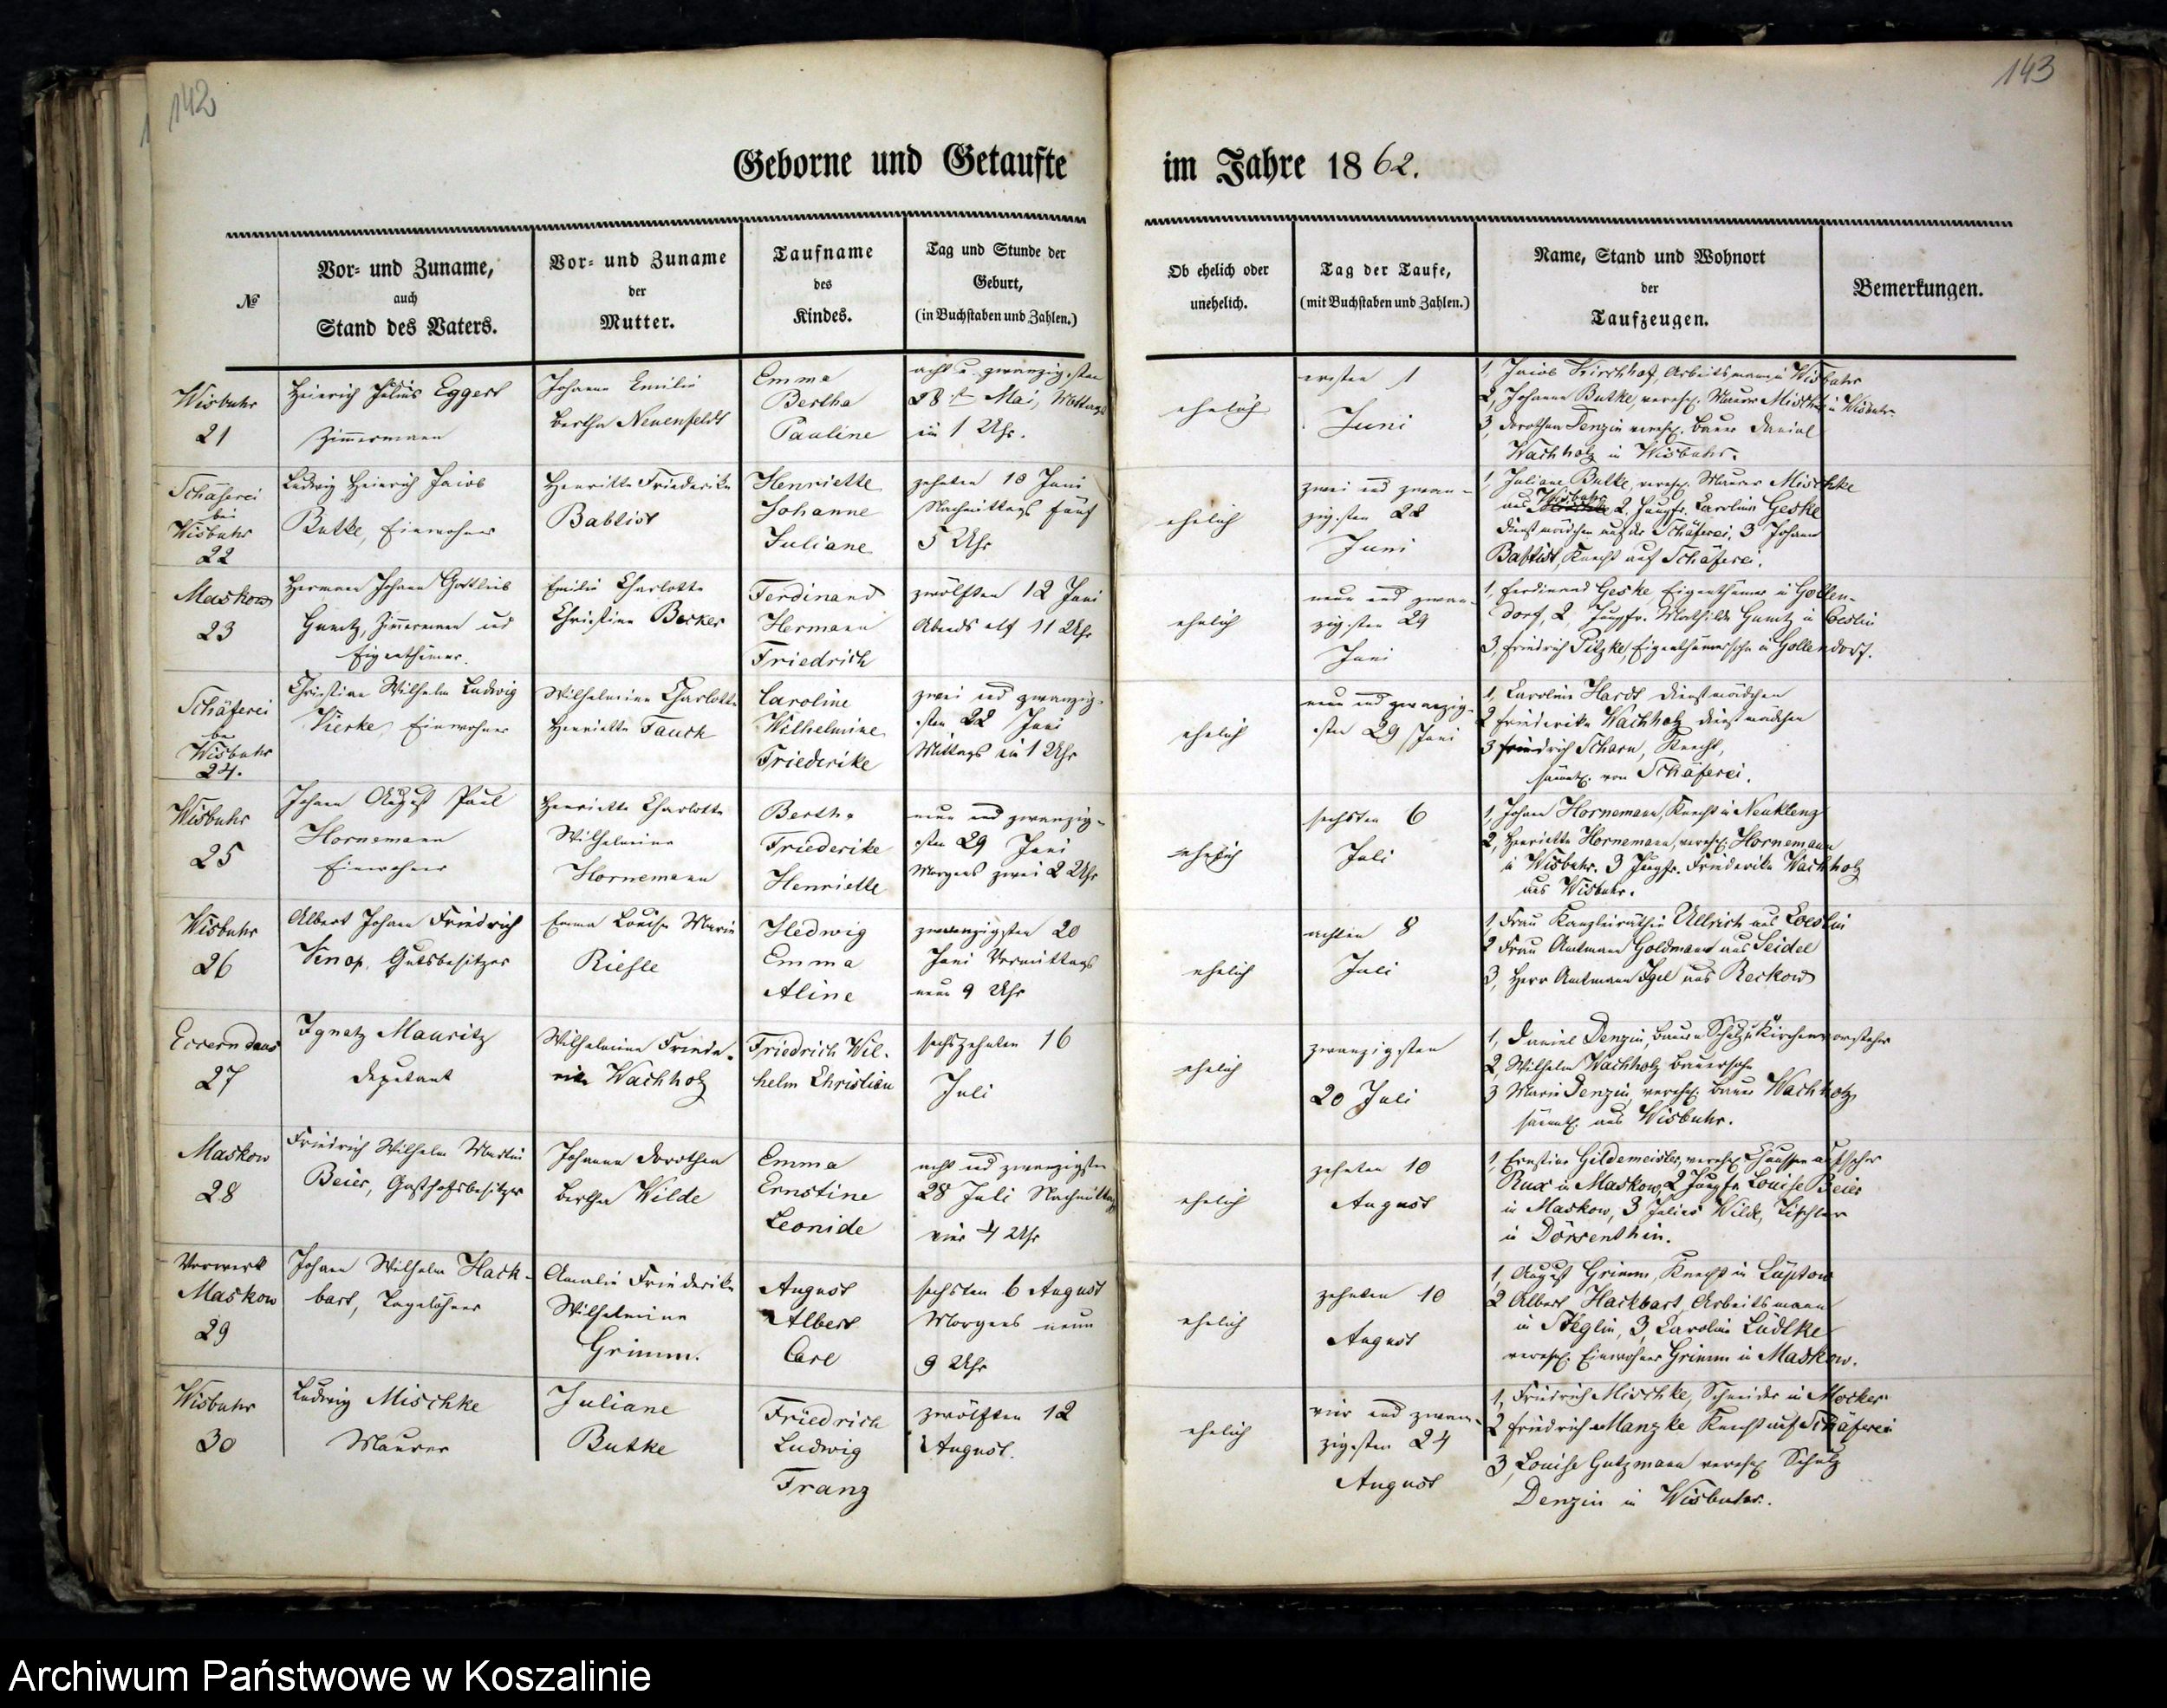 142
143
Geborne und Getaufte
im Jahre 1862.
№
Vor- und Zuname,
auch
Stand des Vaters.
Vor- und Zuname
der
Mutter.
Taufname
des
Kindes.
Tag und Stunde der
Geburt,
(in Buchstaben und Zahlen.)
Ob ehelich oder
unehelich.
Tag der Taufe,
(mit Buchstaben und Zahlen.)
Name, Stand und Wohnort
der
Taufzeugen.
Bemerkungen.
Wisbuhr
21
Heinrich Julius Eggert
Zimmermann
Johanne Emilie
Bertha Neuenfeldt
Emma
Bertha
Pauline
acht u. zwanzigsten
28st Mai, Mittags
um 1 Uhr.
ehelich
ersten 1
Juni
1, Jacob Kirchhof, Arbeitsmann in Wisbuhr
2, Johanne Butke, verehel. Maurer Mischke in Wisbuhr
3, Dorothea Denzin verehel. Bauer Daniel
Wachholz in Wisbuhr.
Schäferei
bei
Wisbuhr
22
Ludwig Heinrich Jacob
Butke, Einwohner
Henriette Friederike
Babtist
Henriette
Johanne
Juliane
zehnten 10 Juni
Nachmittags fünf
5 Uhr
ehelich
zwei und zwan-
zigsten 22
Juni
1, Juliane Butke, verehel. Maurer Mischke
aus Wisbuhr 2. Jungfr. Caroline Geske
Dienstmädchen auf der Schäferei, 3 Johann
Babtist, Knecht auf Schäferei.
Maskow
23
Hermann Johann Gottlieb
Gantz, Zimmermann und
Eigenthümer.
Emilie Charlotte
Christine Becker
Ferdinand
Hermann
Friedrich
zwölften 12 Juni
Abends elf 11 Uhr
ehelich
neun und zwan-
zigsten 29
Juni
1, Ferdinand Geske, Eigenthümer in Gollen-
dorf, 2, Jungfr. Mathilde Gantz in Coeslin
3, Friedrich Pitzke, Eigenthümersohn in Gollendorf.
Schäferei
bei
Wisbuhr
24.
Christian Wilhelm Ludwig
Vierke, Einwohner
Wilhelmine Charlotte
Henriette Fauck
Caroline
Wilhelmine
Friederike
zwei und zwanzig-
sten 22 Juni
Mittags um 1 Uhr
ehelich
neun und zwanzig-
sten 29 Juni
1, Caroline Hardt Dienstmädchen
2 Friederike Wachholz Dienstmädchen
3 Friedrich Scharn, Knecht,
sämtl. von Schäferei.
Wisbuhr
25
Johann August Paul
Hornemann
Einwohner
Henriette Charlotte
Wilhelmine
Hornemann
Bertha
Friederike
Henriette
neun und zwanzig-
sten 29 Juni
Morgens zwei 2 Uhr
ehelich
sechsten 6
Juli
1, Johann Hornemann, Knecht in Neuklenz
2, Henriette Hornemann, verehel. Hornemann
in Wisbuhr. 3 Jungfr. Friederike Wachholz
aus Wisbuhr.
Wisbuhr
26
Albert Johann Friedrich
Knop, Gutsbesitzer
Emma Louise Marie
Riefle
Hedwig
Emma
Aline
zwanzigsten 20
Juni Vormittags
neun 9 Uhr
ehelich
achten 8
Juli
1 Frau Kanzleiräthin Ullrich aus Coeslin
2 Frau Amtmann Goldmann aus Seidel
3, Herr Amtmann Igel aus Reckow
27
Ignatz Mauritz
Deputant
Wilhelmine Friede-
rike Wachholz
Friedrich Wil-
helm Christian
sechszehnten 16
Juli
ehelich
zwanzigsten
20 Juli
1, Daniel Denzin, Bauer Schulz u Kirchenvorsteher
2, Wilhelm Wachholz Bauersohn
3 Marie Denzin, verehel. Bauer Wachholz,
sämtl. aus Wisbuhr.
Maskow
28
Friedrich Wilhelm Martin
Beier, Gasthofsbesitzer
Johanne Dorothea
Bertha Wilde
Emma
Ernstine
Leonide
acht und zwanzigsten
28 Juli Nachmittags
vier 4 Uhr
ehelich
zehnten 10
August
1, Ernstine Gildemeister, verehel. Chausseeaufseher
Rux in Maskow, 2 Jungfr. Louise Beier
in Maskow, 3 Julius Wilde, Tischler
in Dörsenthin.
Vorwerk
Maskow
29
Johann Wilhelm Hack-
bart, Tagelöhner
Amalie Friederike
Wilhelmine
Grimm.
August
Albert
Carl
sechsten 6 August
Morgens neun
9 Uhr
ehelich
zehnten 10
August
1, August Grimm, Knecht in Lüptow
2 Albert Hackbart, Arbeitsmann
in Steglin, 3, Caroline Lüdtke
verehel. Einwohner Grimm in Maskow.
Wisbuhr
30
Ludwig Mischke
Maurer
Juliane
Butke
Friedrich
Ludwig
Franz
zwölften 12
August.
ehelich
vier und zwan-
zigsten 24
August
1, Friedrich Mischke, Schneider in Mocker
2 Friedrich Manzke Knecht auf Schäferei
3, Louise Gutzmann verehel. Schulz
Denzin in Wisbuhr.
Archiwum Państwowe w Koszalinie